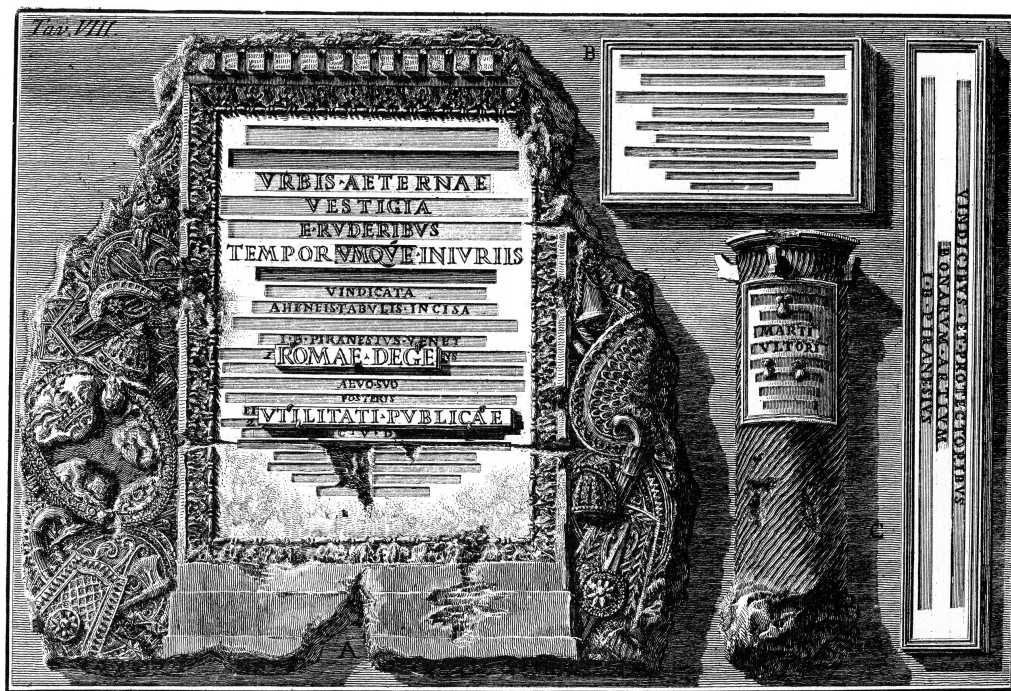 Tav. VIII.
B
VRBIS·AETERNAE
VESTIGIA
E·RVDERIBVS
TEMPORVMQVE·INIVRIIS
VINDICATA
AHENEIS·TABVLIS·INCISA
I·B·PIRANESIVS·VENET
ROMAE·DEGE
AEVO·SVO
POSTERIS
VTILITATI·PVBLICAE
A
MARTI
VLTORI
C
VINDICIBVS·ET·PROTECTORIBVS
BONARVM·ARTIVM
I·B·PIRANESIVS